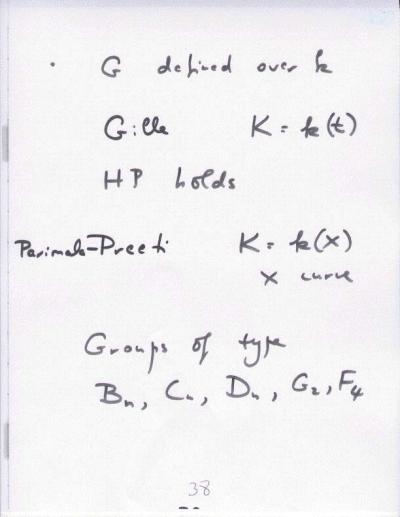 • G defined over k
Gille K = k(t)
HP holds
Parimala-Preeti K = k(X)
X curve
Groups of type
Bn, Cn, Dn, G2, F4
38